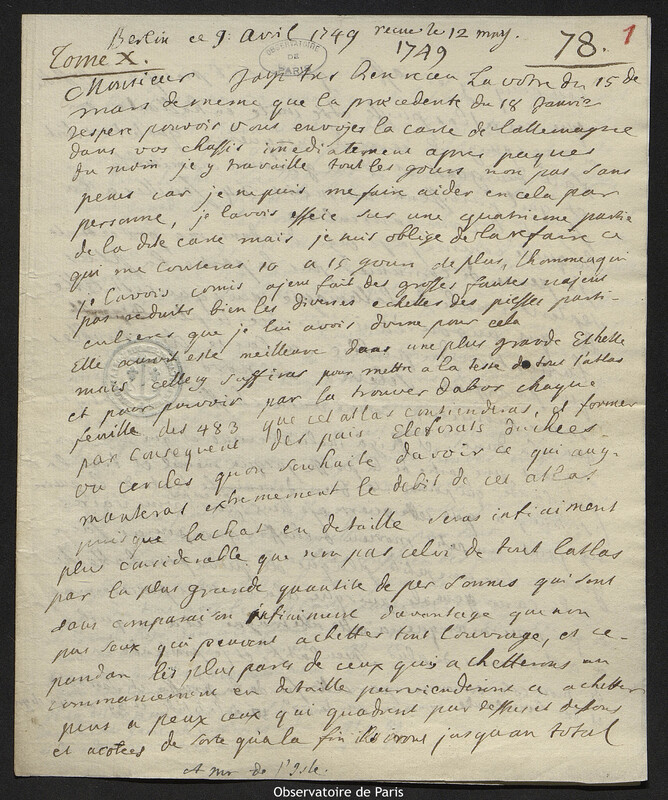 Berlin ce 9. Avril 1749 recue le 12 may.
1749
OBSERVATOIRE DE PARIS
78. 1
Tome X.
Monsieur Jay bien Receu La votre du 15 de
mars de meme que la precedente du 18 Janvier
Jespere pouvoir vous envojer la carte de lallemagne
dans vos chassis imediatement apres paques
du moin je y travaille tout les jours non pas sans
peine car je ne puis me faire aider en cela par
personne, je lavois esseié sur une quatrieme partie
de la dite carte mais je suis oblige de la refaire ce
qui me couteras 10 a 15 jours de plus, lhomme a qui
je lavois comis ajent fait des grosses fautes najent
pas reduits bien les diverses echelles des piesses parti-
culieres que je lui avois donne pour cela
Elle auroit esté meilleure dans une plus grande Eshelle
mais celle cy suffiras pour mettre a la teste de tout l'atlas
et pour pouvoir par la trouver dabor chaque
feuille des 483 que cet atlas contienderas, et former
par consequent des pais Electorats duchees
ou cercles quon souhaite davoir ce qui aug-
manteras extremement le debit de cet atlas
puisque lachat en detaille seras infiniment
plus considerable que non pas celui de tout latlas
par la plus grande quantite de personnes qui sont
sans comparaison infiniment davantage que non
pas ceux qui peuvent achetter tout louvrage, et ce-
pandan les plus parts de ceux qui achetterons au
commancement en detaille parviendiront a achetter
peus a peux ceux qui quadrent par dessus et desous
et acotees de sorte qua la fin ils irons jusquau total
A mr de l'Isle.
Observatoire de Paris